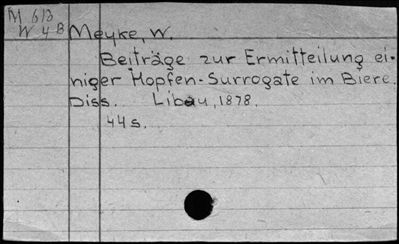 M 613
W 4 B Meyke, W.
Beiträge zur Ermitteilung ei-
niger Hopfen-Surrogate im Biere.
Diss. Libau, 1878.
44 s.